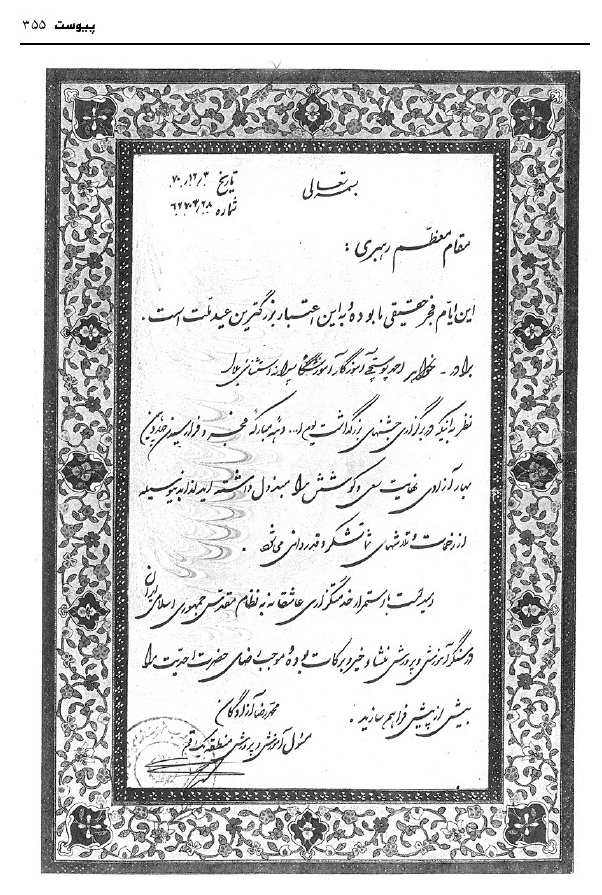 پیوست ۳۵۵
بسمه تعالی
تاریخ ۷۰/۱۲/۳
شماره
مقام معظم رهبری :
این ایام فجر حقیقی ما بوده و به این اعتبار بزرگترین عید ملت است .
برادر - خواهر احمد آموزگار آموزشگاه پسرانه راهنمائی بلال
نظر به اینکه در برگزاری جشنهای بزرگداشت یوم ا... دهه مبارکه فجر و فرارسیدن
بهار آزادی نهایت سعی و کوشش را مبذول داشته اید لذا بدینوسیله
از زحمات و تلاشهای شما تشکر و قدردانی می شود .
امید است با استمرار خدمتگزاری عاشقانه به نظام مقدس جمهوری اسلامی ایران
در سنگر آموزش و پرورش منشاء خیر و برکات بوده و موجب رضای حضرت احدیت را
بیش از پیش فراهم سازید .
محمدرضا آزادگان
مسئول آموزش و پرورش منطقه یک قم